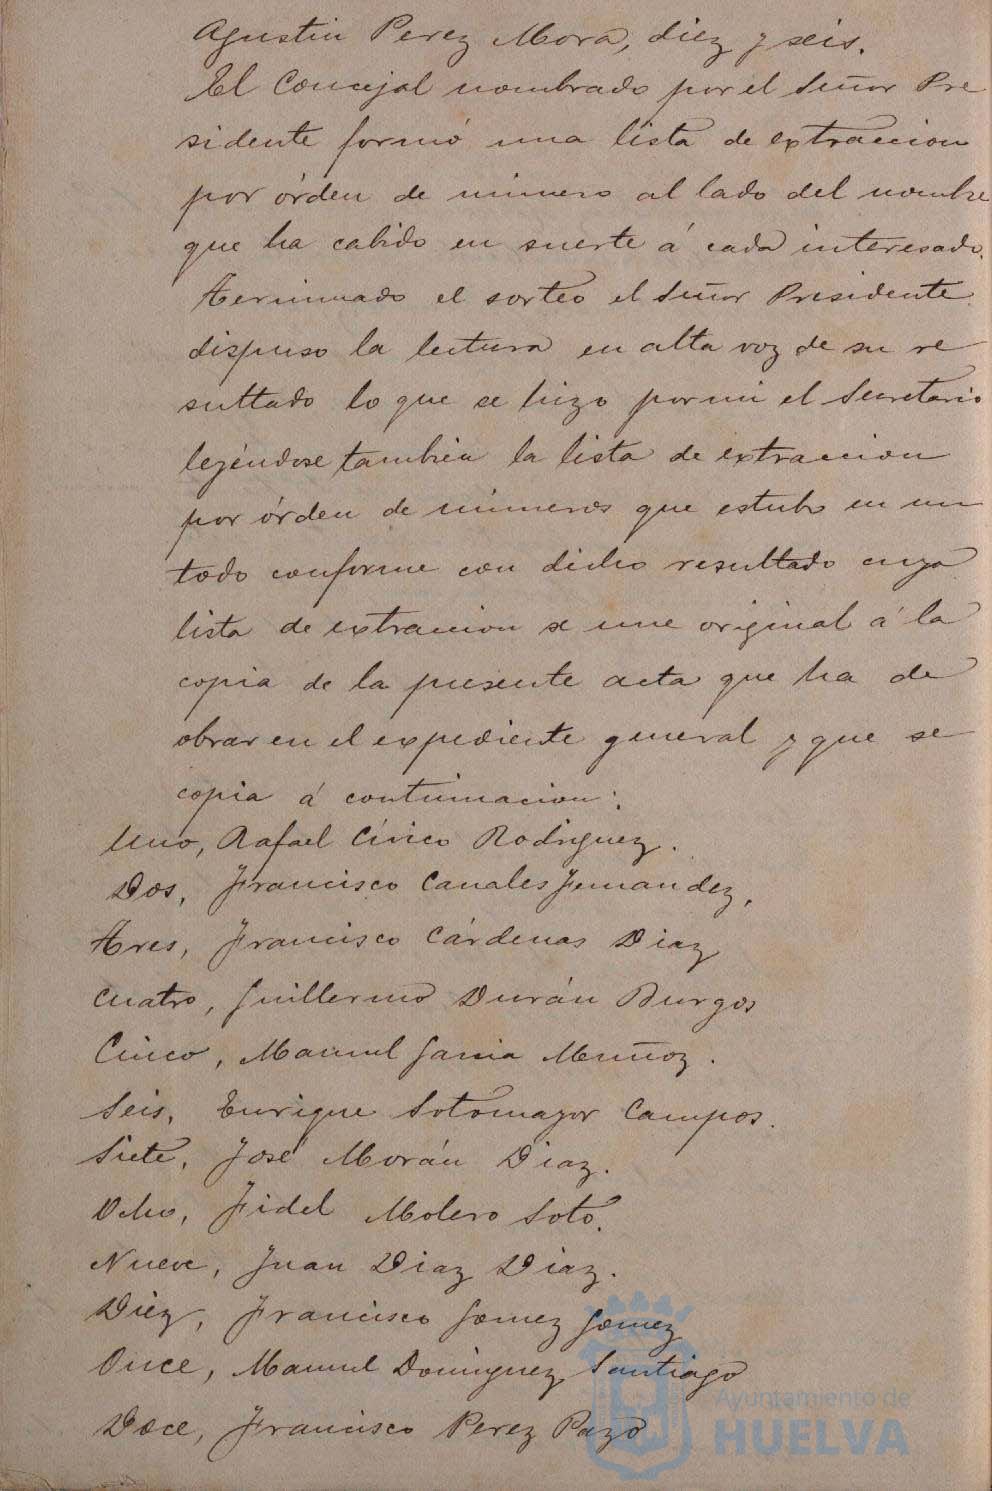 Agustin Perez Mora, diez y seis.
El Concejal nombrado por el Señor Pre
sidente formó una lista de extraccion
por órden de número al lado del nombre
que ha cabido en suerte á cada interesado.
Terminado el sorteo el Señor Presidente
dispuso la lectura en alta voz de su re
sultado lo que se hizo por mi el Secretario
leyéndose tambien la lista de extraccion
por órden de números que estubo en un
todo conforme con dicho resultado cuya
lista de extraccion se une original á la
copia de la presente acta que ha de
obrar en el expediente general y que se
copia á continuacion:
Uno, Rafael Cívico Rodriguez.
Dos, Francisco Canales Fernandez,
Tres, Francisco Cárdenas Diaz
Cuatro, Guillermo Durán Burgos
Cinco, Manuel Garcia Muñoz.
Seis, Enrique Sotomayor Campos.
Siete, José Morán Diaz.
Ocho, Fidel Molero Soto.
Nueve, Juan Diaz Diaz.
Diez, Francisco Gomez Gomez
Once, Manuel Dominguez Santiago
Doce, Francisco Perez Pazo
Ayuntamiento de
HUELVA